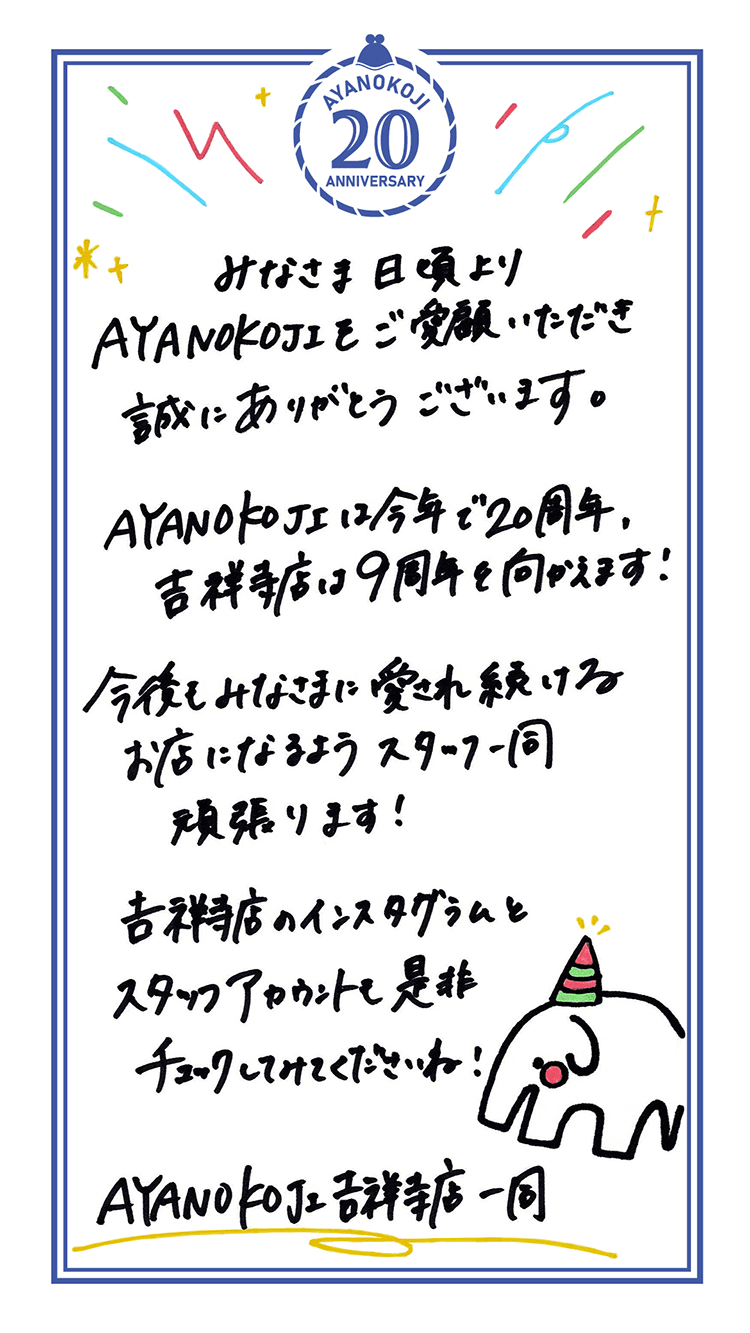 AYANOKOJI
20
ANNIVERSARY
みなさま 日頃より
AYANOKOJIをご愛顧いただき
誠にありがとうございます。
AYANOKOJIは今年で20周年、
吉祥寺店は9周年を向かえます!
今後もみなさまに愛され続ける
お店になるよう スタッフ一同
頑張ります!
吉祥寺店のインスタグラムと
スタッフアカウントも是非
チェックしてみてくださいね!
AYANOKOJI 吉祥寺店一同